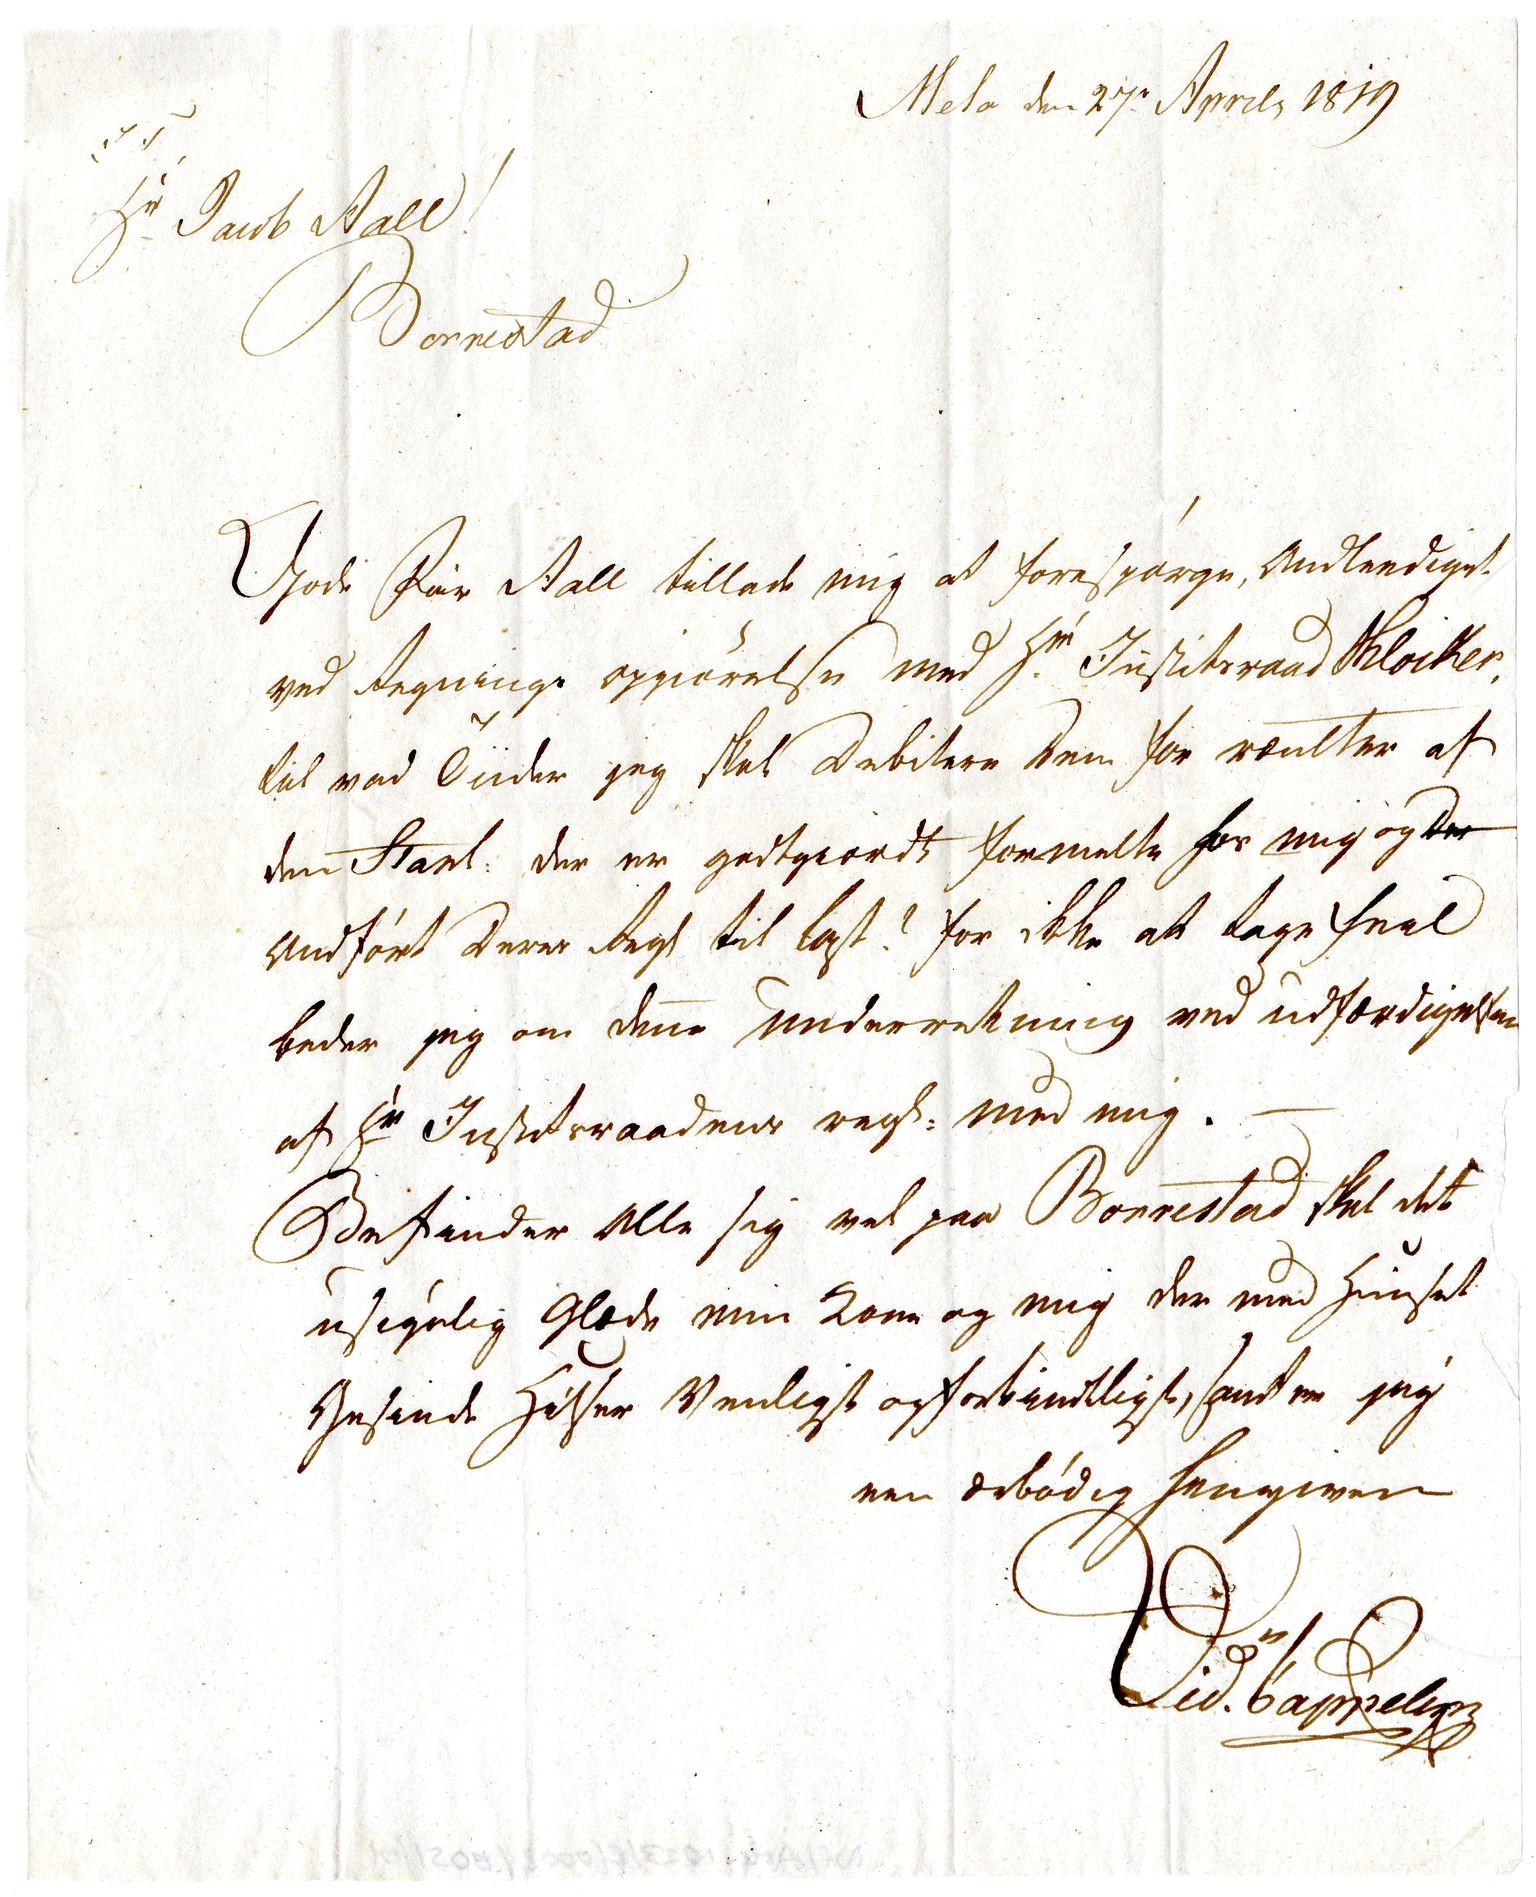 Mela den 27de Aprils 1819
S T
Hr Jacob Aall!
Borrestad
Gode Fær Aall tillade mig at forespørge, Andleedigst
ved Regnings opgiørelse med Hr Justitsraad Kløcker,
til vad Tiider jeg skal Debitere Dem for rænter af
den Stael: der er godtgiordt formelte for mig og der
Andført Deres Regl til last? for ikke at tage feil
beder jeg om denne Underretning ved udfærdigelsen
af Hr Justitsraadens regl: med mig. —
Befinder Alle sig vel paa Borrestad skal det
usigelig Glæde min Kone og mig der med Huuset
Gesinde Hilser Venligst og forbindtligst, samt er jeg
een ærbødig hengiven
Did. Cappelen